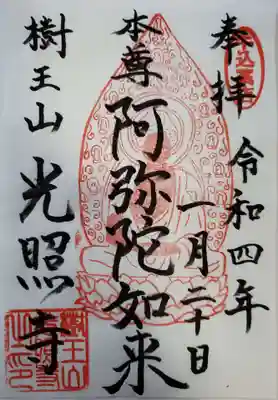 奉拝
令和四年
一月二十日
本尊
阿弥陀如来
樹王山
光照寺